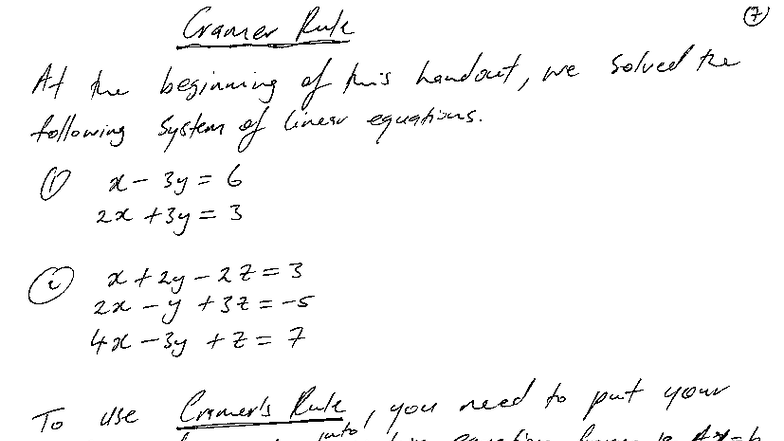 Cramer Rule
7
At the beginning of this handout, we solved the
following system of linear equations.
1 x - 3y = 6
2x + 3y = 3
2 x + 2y - 2z = 3
2x - y + 3z = -5
4x - 3y + z = 7
To use Cramer's Rule, you need to put your
into equation